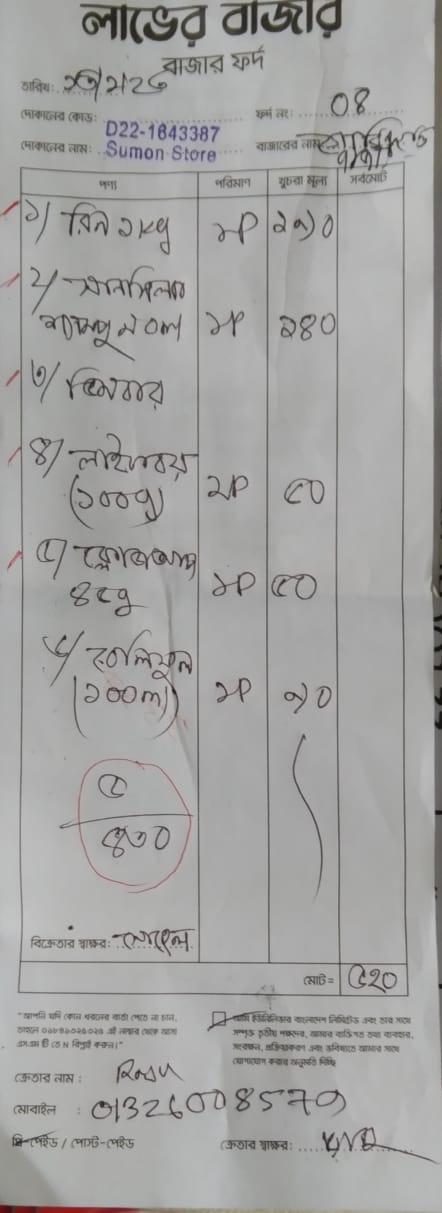 লাভের বাজার
বাজার ফর্দ
তারিখ:
ফর্দ নং: 08
দোকানের কোড: D22-1643387
দোকানের নাম: Sumon Store
বাজারের নাম:
পণ্য পরিমাণ খুচরা মূল্য সর্বমোট
১/ রিন ১kg ১P ২১০
২/ সানসিল্ক
শ্যাম্পু ml ১P ২৪০
৩/ ভিমবার
৪/ লাইফবয়
(১০০g) ১P ৫০
৫/ ক্লোজআপ
৪৫g ১P ৫০
৬/
(১০০ml) ১P ৭০
৫
৪৩০
বিক্রেতার স্বাক্ষর: সোহেল
মোট= ৫২০
"আপনি যদি কোন ধরনের বার্তা পেতে না চান,
তাহলে এই নাম্বার থেকে আসা
এস.এম.এস টি তে N রিপ্লাই করুন।"
আমি ইউনিলিভার বাংলাদেশ লিমিটেড এবং তার সাথে
সম্পৃক্ত তৃতীয় পক্ষদের, আমার ব্যক্তিগত তথ্য ব্যবহার,
সংরক্ষন, প্রক্রিয়াকরণ এবং ভবিষ্যতে আমার সাথে
যোগাযোগ করার অনুমতি দিচ্ছি
ক্রেতার নাম :
মোবাইল : 01326008579
প্রি-পেইড / পোস্ট-পেইড
ক্রেতার স্বাক্ষর: